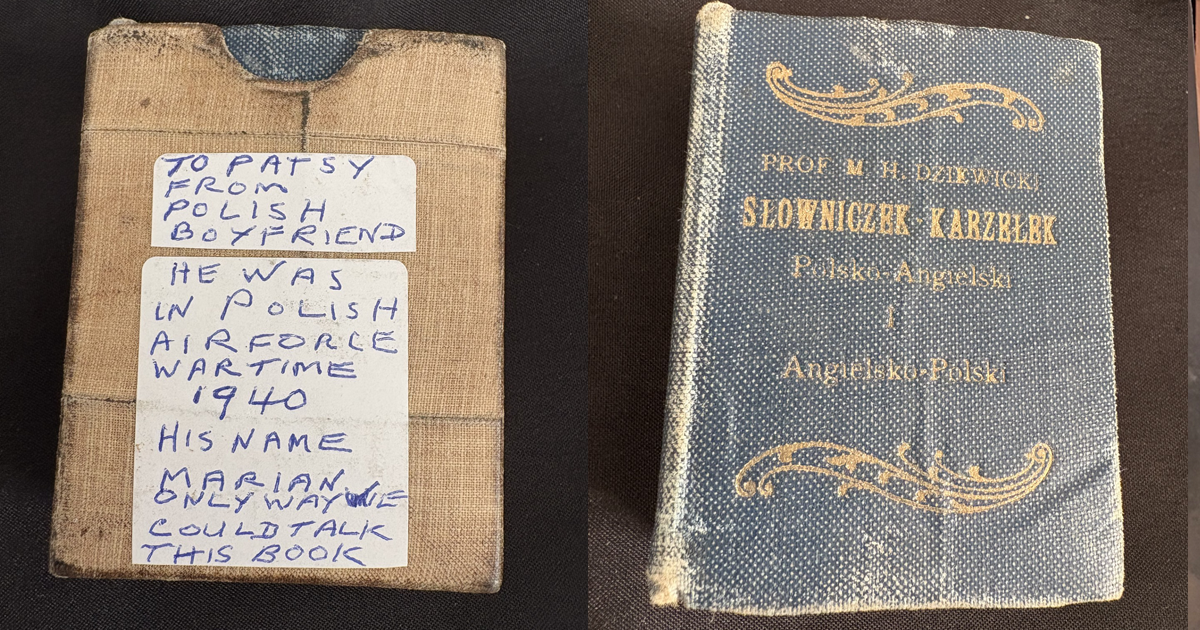 TO PATSY
FROM
POLISH
BOYFRIEND
HE WAS
IN POLISH
AIRFORCE
WARTIME
1940
HIS NAME
MARIAN
ONLY WAY WE
COULD TALK
THIS BOOK
PROF. M. H. DZIEWICKI
SŁOWNICZEK-KARZEŁEK
Polsko-Angielski
I
Angielsko-Polski